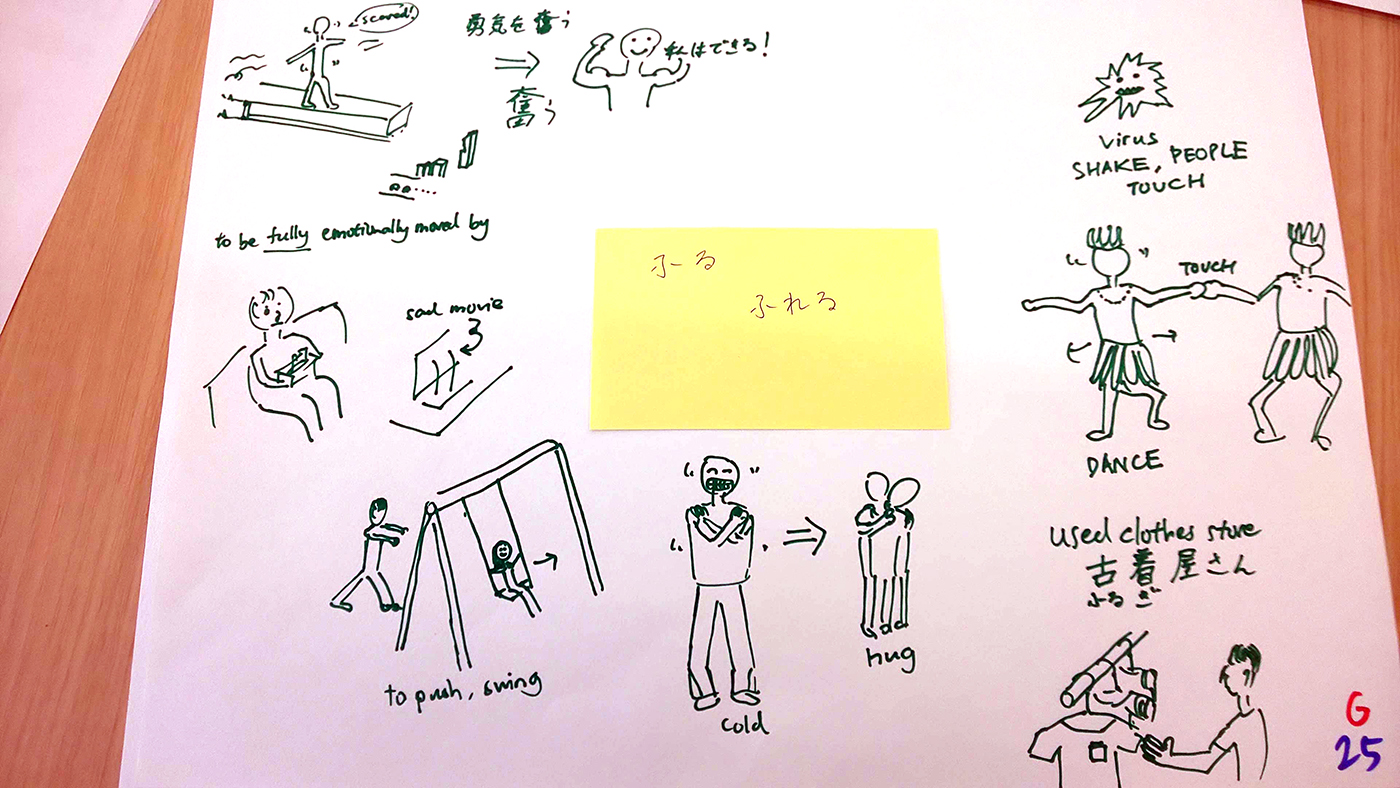 scared!
勇気を奮う
奮う
私はできる!
to be fully emotionally moved by
sad movie
ふーる
ふれる
virus
SHAKE, PEOPLE
TOUCH
TOUCH
DANCE
to push, swing
cold
hug
used clothes store
古着屋さん
ふるぎ
G
25